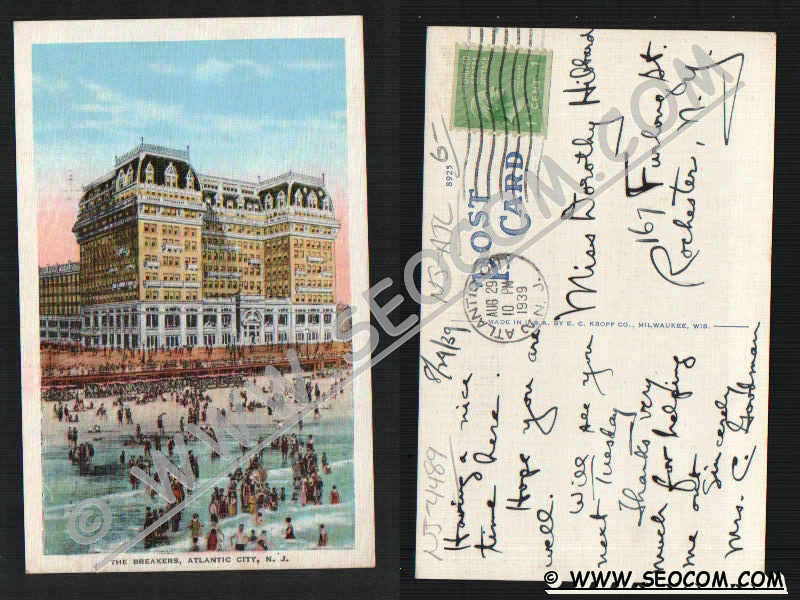 THE BREAKERS, ATLANTIC CITY, N. J.
© WWW.SEOCOM.COM
6-
NJ-ATL
NJ-4489
8925
POST
CARD
ATLANTIC
AUG 29
10 PM
1939
N. J.
MADE IN U.S.A. BY E. C. KROPP CO., MILWAUKEE, WIS.
Miss Dorothy Hibbard
167 Furlong St.
Rochester, N. Y.
8/29/39
Having a nice
time here.
Hope you are
well.
Will see you
next Tuesday
Thanks very
much for helping
me out
Sincerely
Mrs. C. Goodman
© WWW.SEOCOM.COM
© WWW.SEOCOM.COM